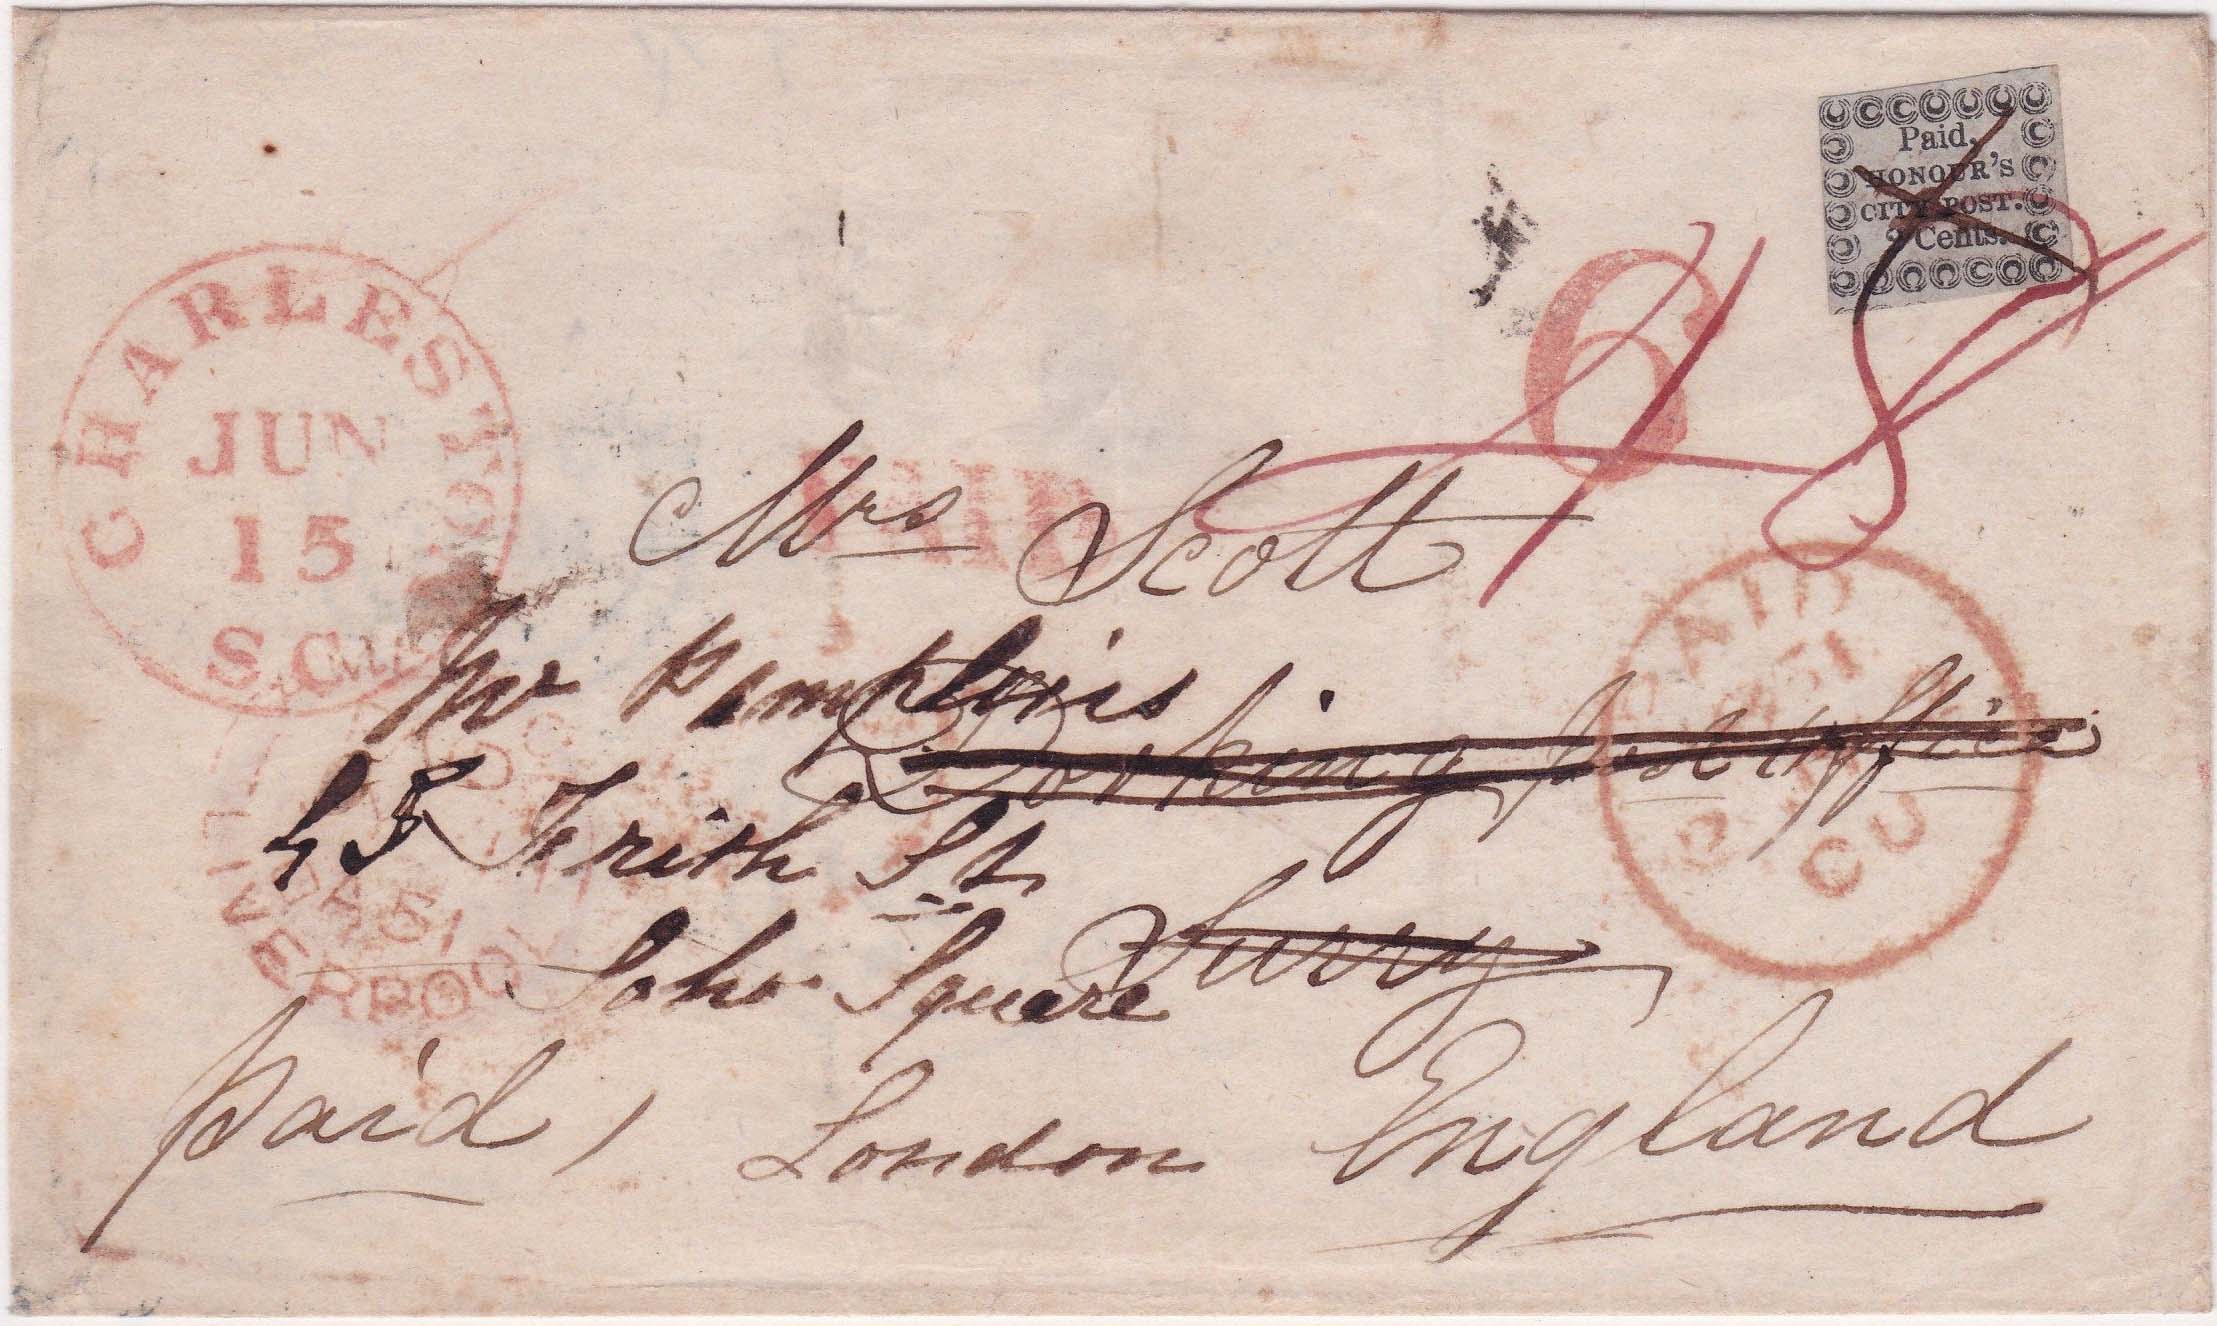 Paid,
HONOUR'S
CITY POST.
2 Cents.
CHARLESTON
JUN
15
S.C.
6
48
PAID
Mrs Scott
Mr Pamplin's
Dorking post office
45 Frith St
Surry
Soho Square
paid, London England
PAID
51
LIVERPOOL
51